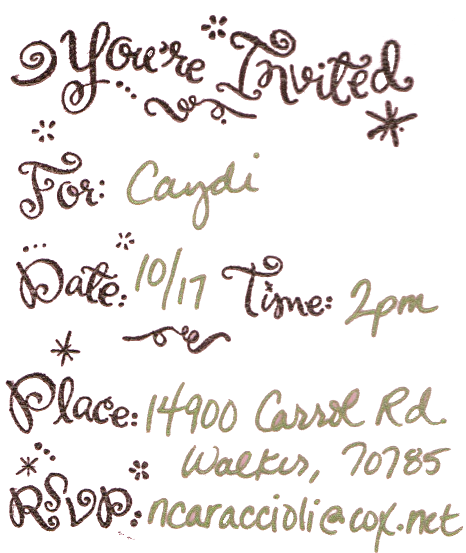 You're Invited
For: Caydi
Date: 10/17 Time: 2pm
Place: 14900 Carrol Rd.
Walker, 70785
RSVP: ncaraccioli@cox.net